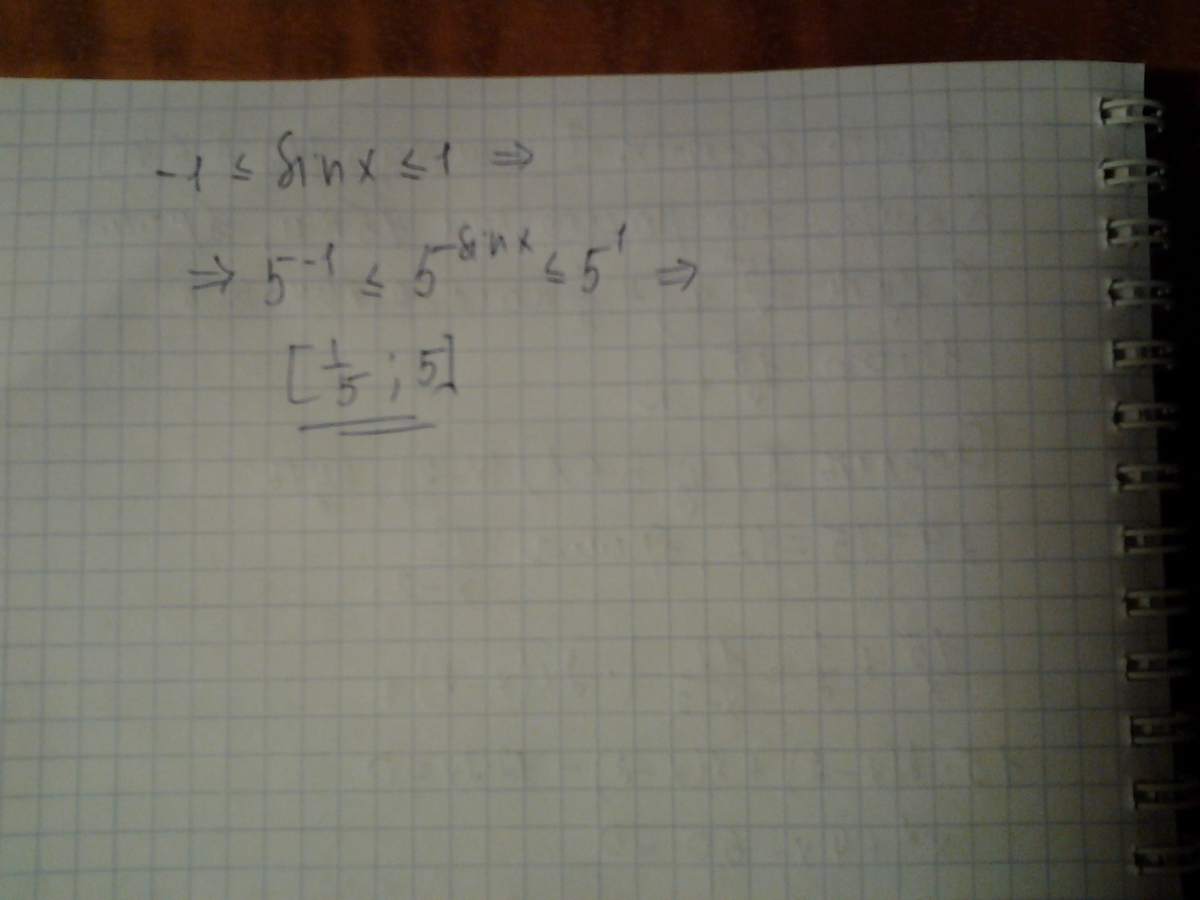 -1 ≤ sin x ≤ 1 ⇒
⇒ 5^-1 ≤ 5^sin x ≤ 5^1 ⇒
[1/5 ; 5]